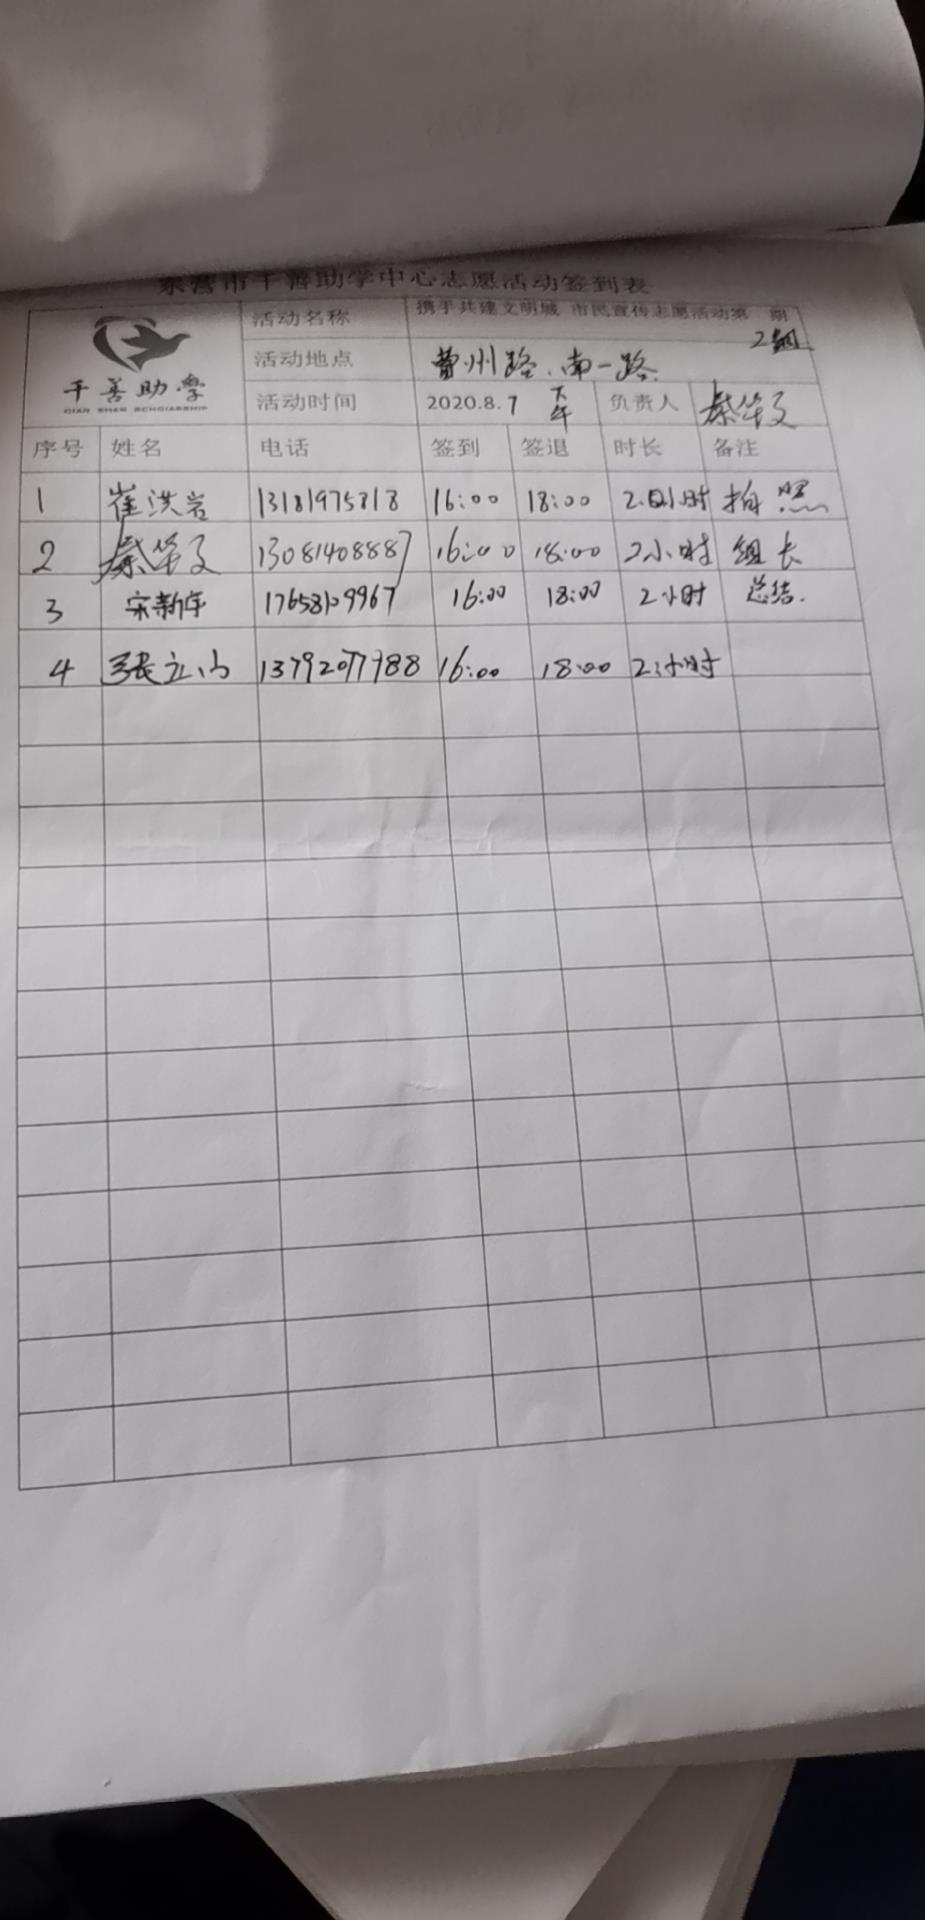 东营市千善助学中心志愿活动签到表
千善助学
QIAN SHAN SCHOLARSHIP
活动名称 携手共建文明城 市民宣传志愿活动第 期
2组
活动地点 曹州路、南一路
活动时间 2020.8.7 下午 负责人 秦华文
序号 姓名 电话 签到 签退 时长 备注
1 崔洪岩 13181975818 16:00 18:00 2小时 拍照
2 秦华文 13081408887 16:00 18:00 2小时 组长
3 宋新宇 17658109967 16:00 18:00 2小时 总结.
4 张立山 13792077988 16:00 18:00 2小时